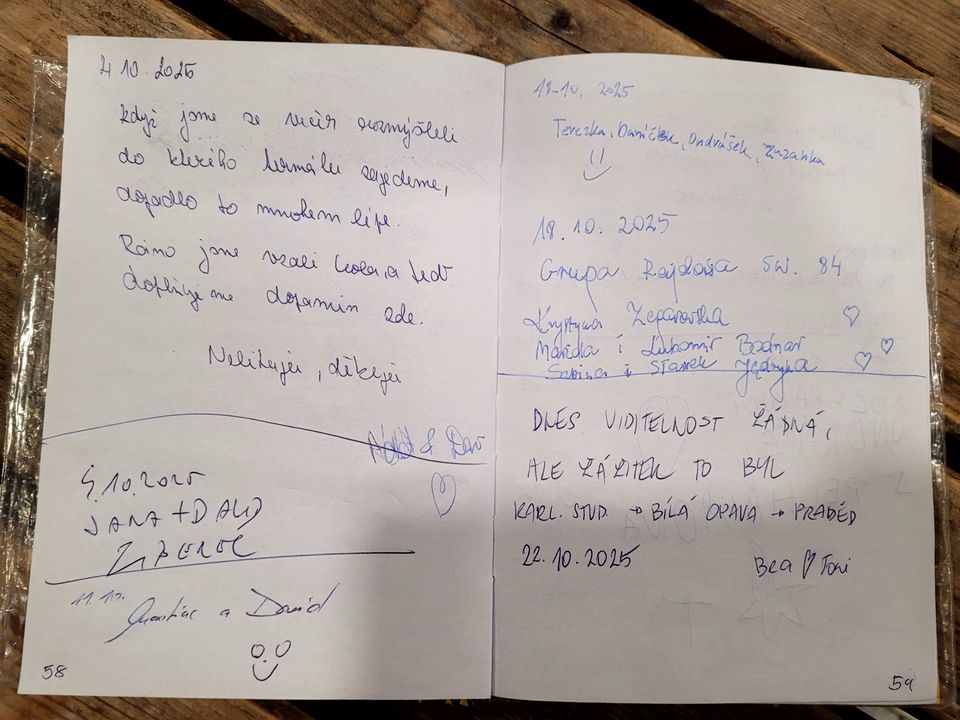 4.10.2025
Když jsme se večer rozmýšleli
do kterého termálu zajedeme,
dopadlo to mnohem lépe.
Ráno jsme vzali kola a teď
doplňujeme dopamin zde.
Nelituji, děkuji
& Davo
5.10.2025
JANA + DAVID
11.10.
a David
58
18.10.2025
Terezka, Daníček, Ondrášek, Zuzanka
18.10.2025
Grupa Rajdowa SW. 84
Krystyna
i Lubomir Bodnar
Sabina i Stasek Jędryka
DNES VIDITELNOST ŽÁDNÁ,
ALE ZÁŽITEK TO BYL
KARL. STUD. → BÍLÁ OPAVA → PRADĚD
22.10.2025
Bea ♡ Toni
59